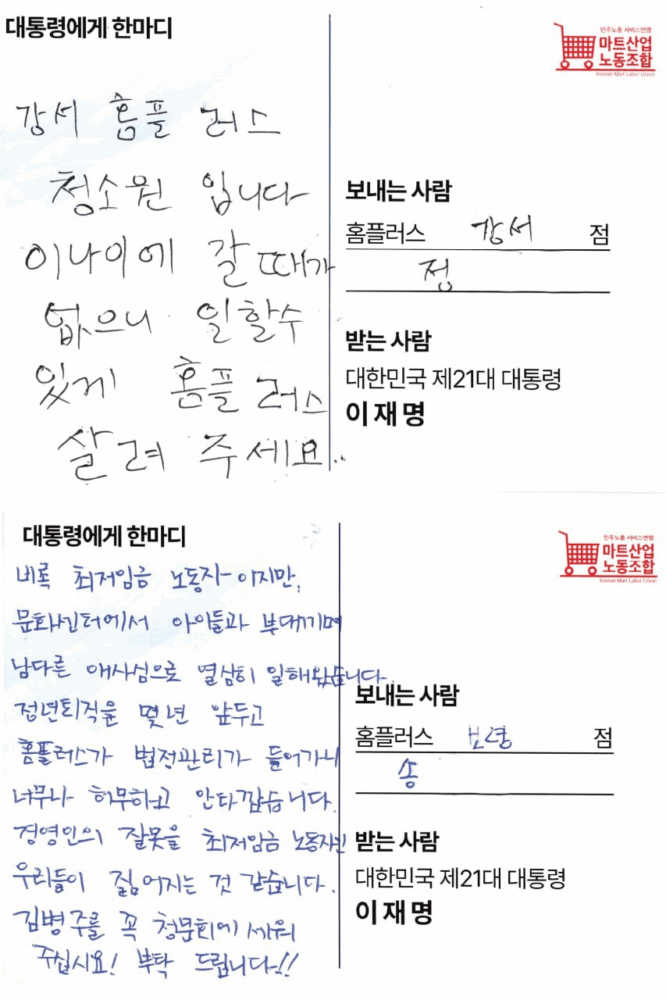 대통령에게 한마디
강서 홈플러스
청소원 입니다
이나이에 갈때가
없으니 일할수
있게 홈플러스
살려 주세요..
민주노총 서비스연맹
마트산업
노동조합
Korean Mart Labor Union
보내는 사람
홈플러스 강서 점
정
받는 사람
대한민국 제21대 대통령
이재명
대통령에게 한마디
비록 최저임금 노동자이지만,
문화센터에서 아이들과 부대끼며
남다른 애사심으로 열심히 일해왔습니다.
정년퇴직을 몇년 앞두고
홈플러스가 법정관리가 들어가니
너무나 허무하고 안타깝습니다.
경영인의 잘못을 최저임금 노동자인
우리들이 짊어지는 것 같습니다.
김병주를 꼭 청문회에 세워
주십시요! 부탁 드립니다!!
민주노총 서비스연맹
마트산업
노동조합
Korean Mart Labor Union
보내는 사람
홈플러스 보령 점
송
받는 사람
대한민국 제21대 대통령
이재명